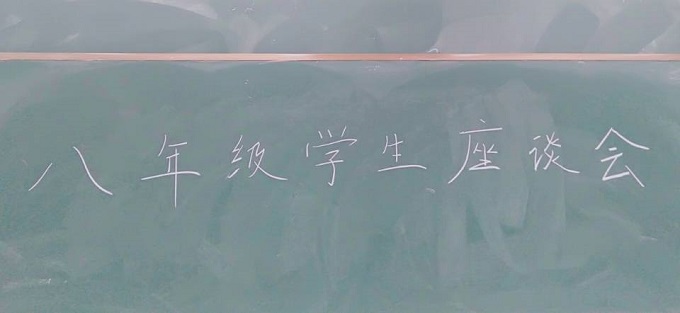 八年级学生座谈会